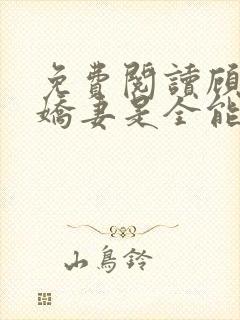 免費閱讀顧
嬌妻是全能
山鳥鈴